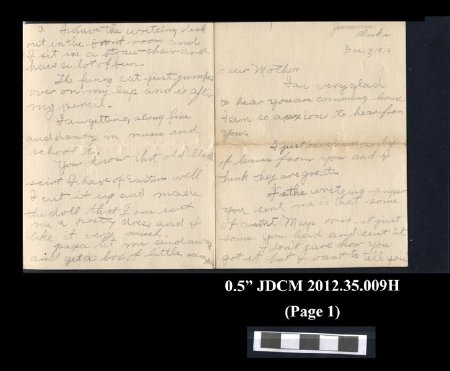 3. I have the writing desk
out in the front room and
I sit in a straw chair and
have a lot of fun.
The funny cat just jumped
over on my lap and is after
my pencil.
I am getting along fine
and dandy in music and
school to.
You know that old black
skirt I have of Easitus well
I cut it up and made
the doll that I me
me a pretty dress and I
like it very much.
papa let me send away
and get a box of little
Juneau
Alaska
Dec. 3, 1919.
Dear Mother
I am very glad
to hear you are comming home
I am so anxious to hear from
you.
I just received candy
& leaves from you and I
think they are great.
Is the writeing paper
you sent me is that some
of aunt Mays or is it just
some you had and sent it
I don't care how you
got it but I want to tell you
0.5” JDCM 2012.35.009H
(Page 1)